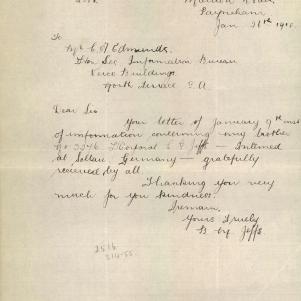 Payneham
Jan 21st 1918
To
Mr C A Edmunds.
Hon Sec Information Bureau
Verco Buildings.
North Terrace S.A.
Dear Sir
Your letter of January 9th inst
of information concerning my brother
No 3246 L/Corporal C P Jeffs — Interned
at Soltau, Germany — gratefully
received by all.
Thanking you very
much for you kindness.
I remain,
Yours Truely
Jeffs.